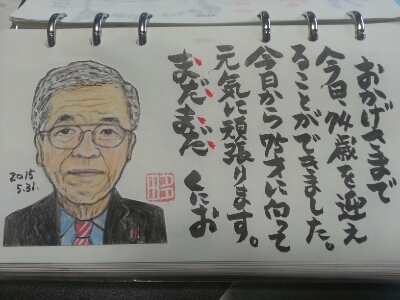 おかげさまで
今日、74歳を迎え
ることができました。
今日から75才に向って
元気に頑張ります。
まだまだ くにお
2015
5.31.